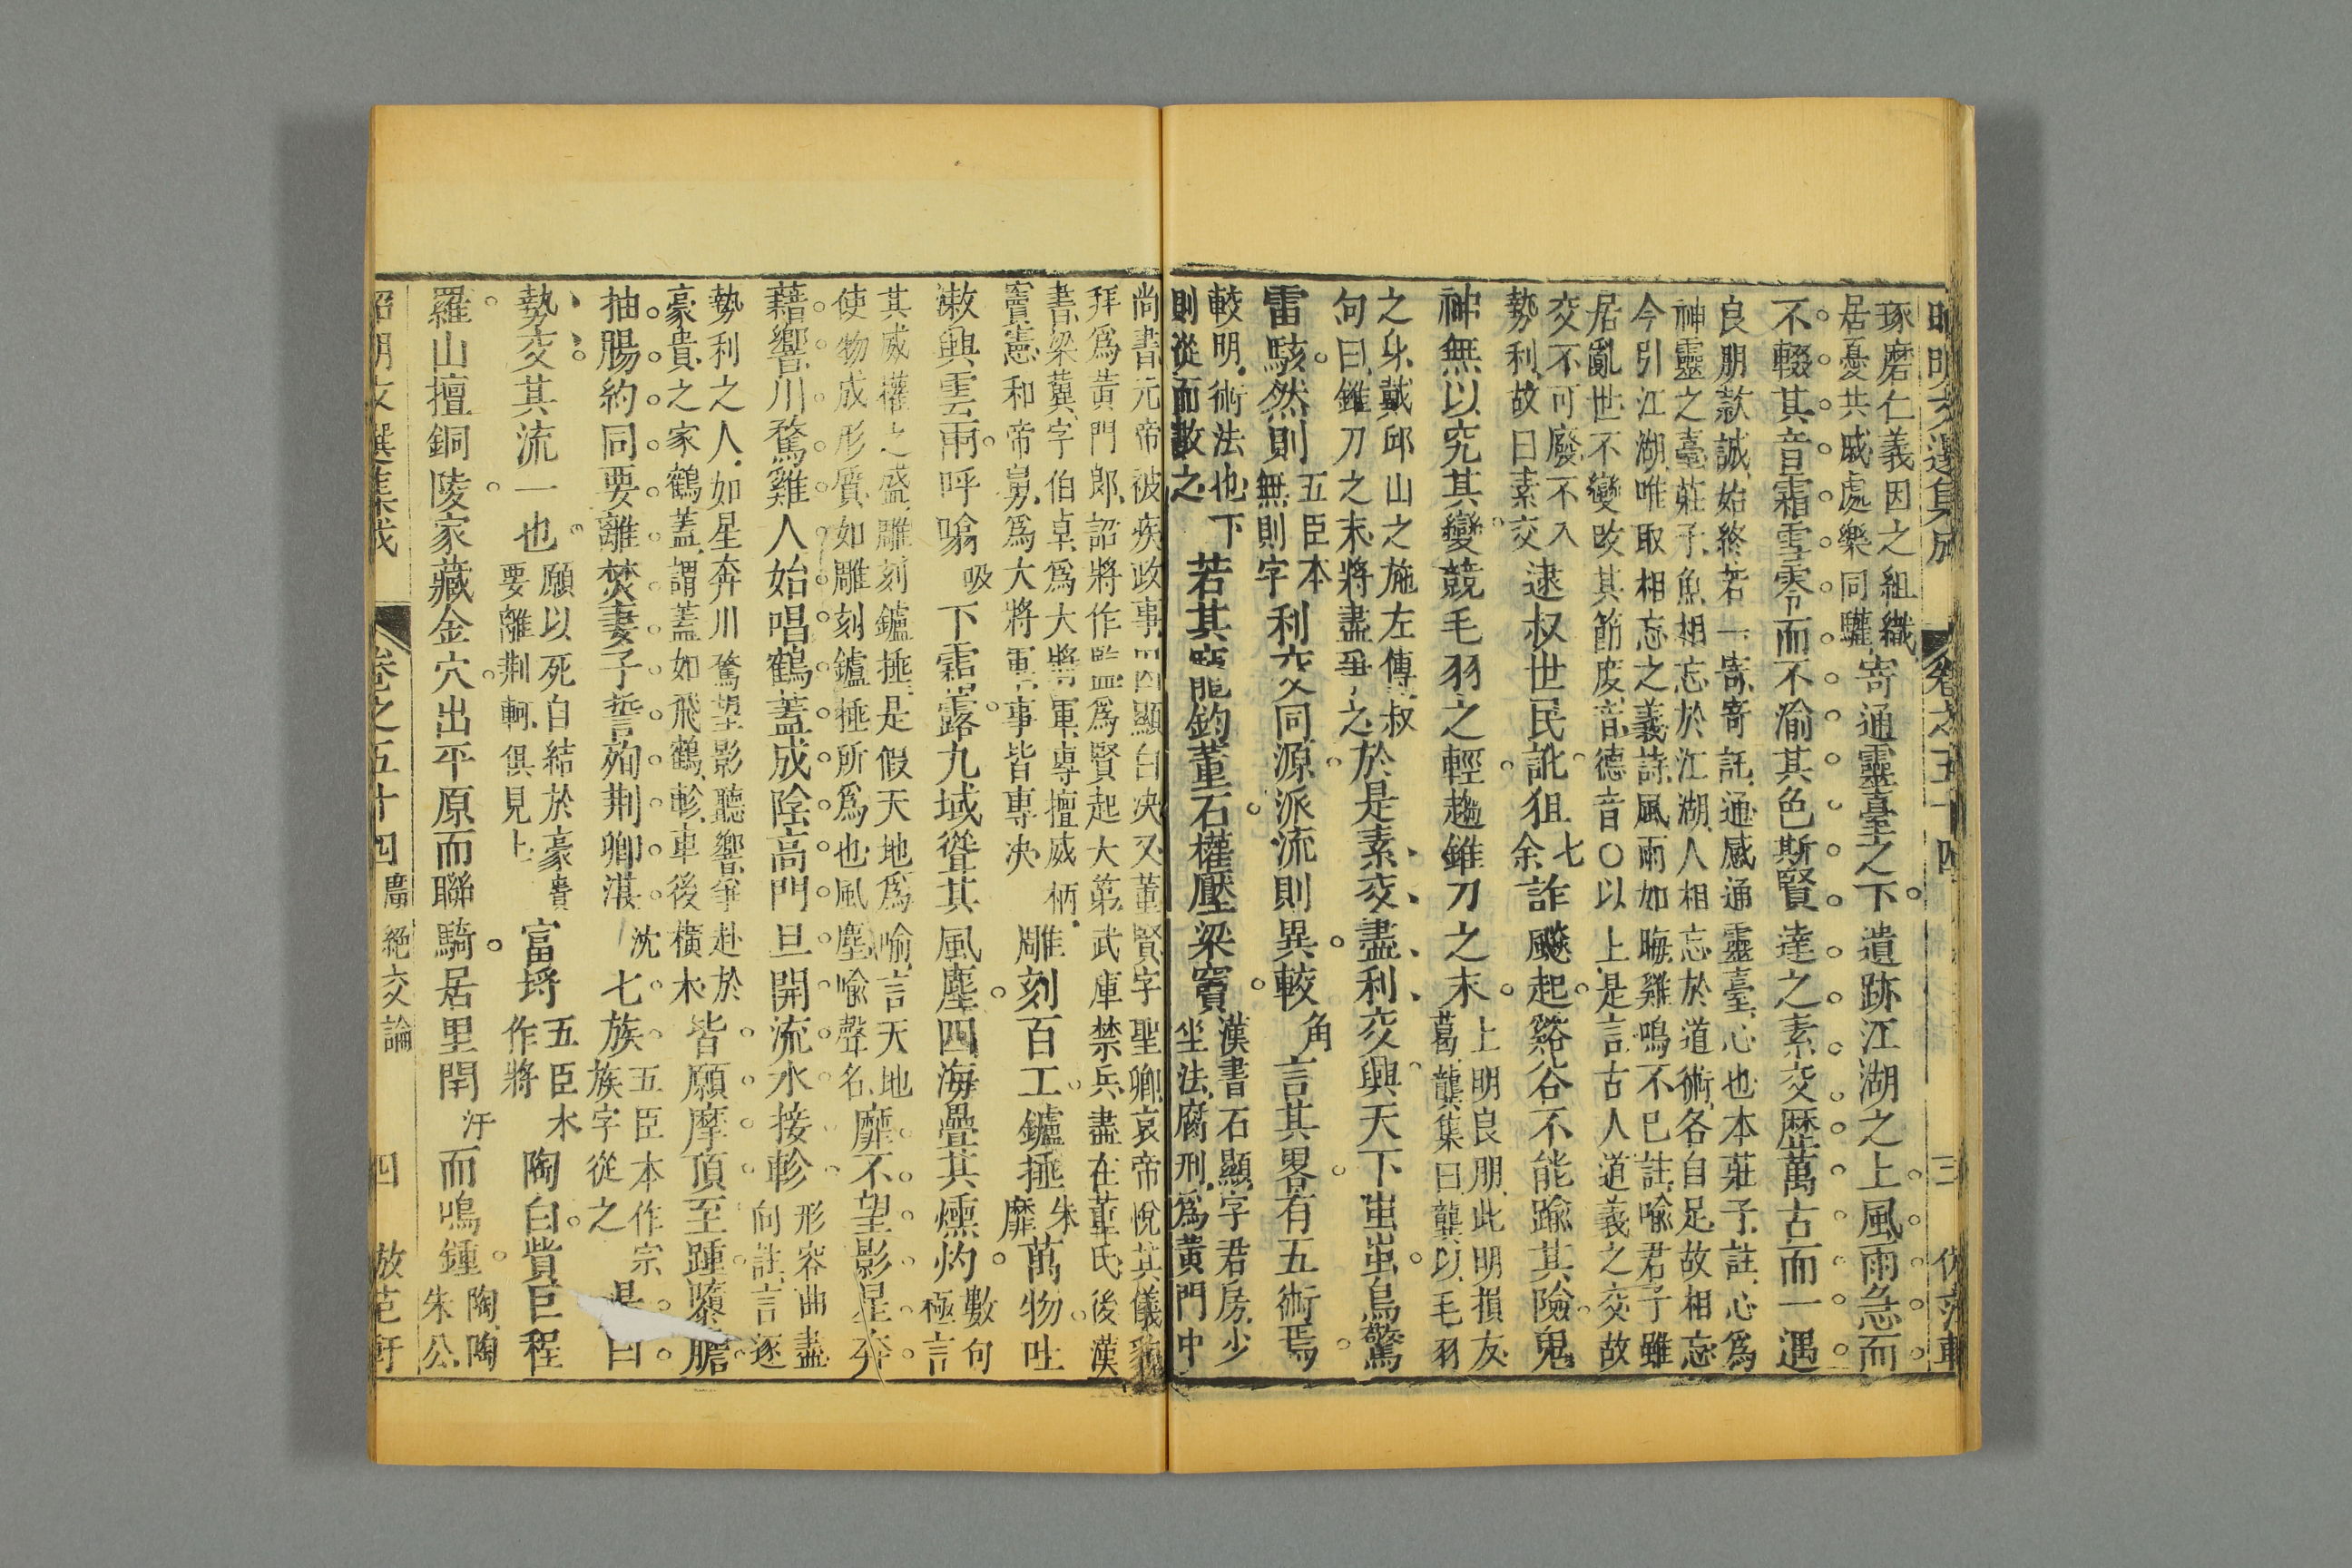 昭明文選集成 卷之五十四 三
琢磨仁義因之組織
居憂共戚處樂同驩
寄通靈臺之下遺跡江湖之上風雨急而
不輟其音霜雪零而不渝其色斯賢達之素交歷萬古而一遇
良朋款誠始終若一寄寄託通感通靈臺心也本莊子註心爲
神靈之臺莊子魚相忘於江湖人相忘於道術各自足故相忘
今引江湖唯取相忘之義詩風雨如晦雞鳴不已註喻君子雖
居亂世不變改其節度音德音○以上是言古人道義之交故
交不可廢不入
勢利故曰素交
逮叔世民訛狙七余詐飈起谿谷不能踰其險鬼
神無以究其變競毛羽之輕趨錐刀之末
上明良朋此明損友
葛龔集曰龔以毛羽
之身戴邱山之施左傳叔
句曰錐刀之末將盡爭之
於是素交盡利交興天下蚩蚩鳥驚
雷駭然則五臣本無則字利交同源派流則異較角言其畧有五術焉
較明術法也下
則從而敢之
若其寵鈞董石權壓梁竇
漢書石顯字君房少
坐法腐刑爲黃門中
尚書元帝被疾政事
顯白决又董賢字聖卿哀帝悅其儀貌
拜爲黃門郎詔將作監爲賢起大第武庫禁兵盡在董氏後漢
書梁冀字伯卓爲大將軍專擅威柄
竇憲和帝舅爲大將軍事皆專决
雕刻百工鑪捶朱靡萬物吐
漱興雲雨呼噏吸下霜露九域聳其風塵四海疊其燻灼
數句
極言
其威權之盛雕刻鑪捶是假天地爲喻言天地
使物成形質如雕刻鑪捶所爲也風塵喻聲名
靡不望影星奔
藉響川騖雞人始唱鶴蓋成陰高門旦開流水接軫
形容曲盡
向註言逐
勢利之人如星奔川騖望影聽響爭赴於
豪貴之家鶴蓋謂蓋如飛鶴軫車後橫木
皆願摩頂至踵隳膽
抽腸約同要離焚妻子誓殉荆卿湛沈七族
五臣本作宗
族字從之
是曰
勢交其流一也
願以死自結於豪貴
要離荆軻俱見上
富埒五臣本作將陶白貲巨程
羅山擅銅陵家藏金穴出平原而聯騎居里閈汗而鳴鍾
陶陶
朱公
昭明文選集成 卷之五十四 廣絕交論 四 倣范軒